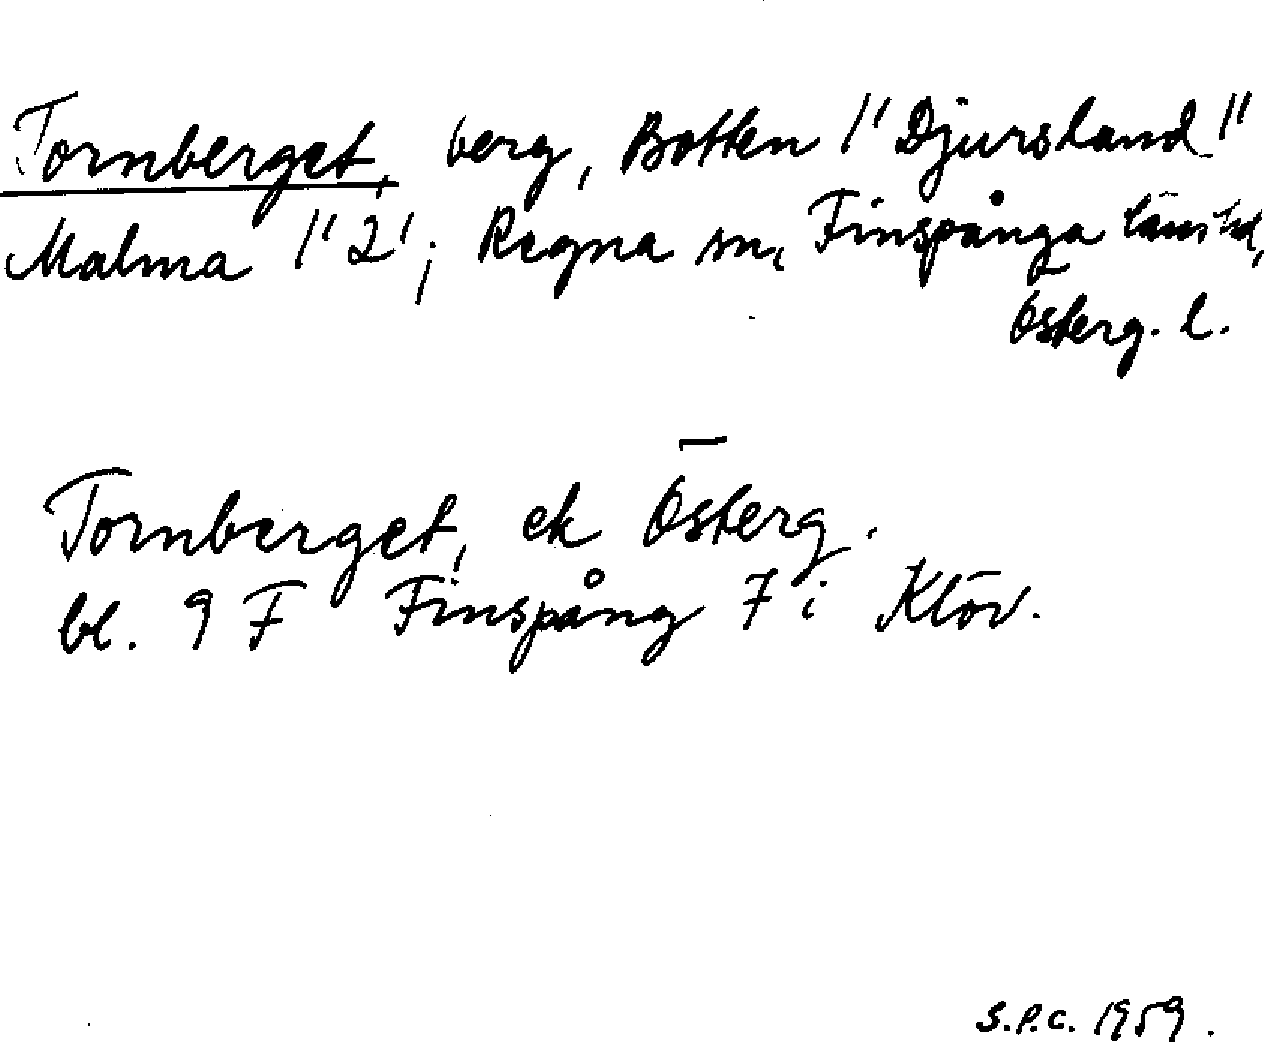 Tornberget, berg, Botten 1" Djursland 1"
Malma 1" 2'; Regna sn, Finspånga läns hd,
Österg. l.
Tornberget, ek Österg.
bl. 9 F Finspång 7 i Klöv.
S.P.C. 1959.